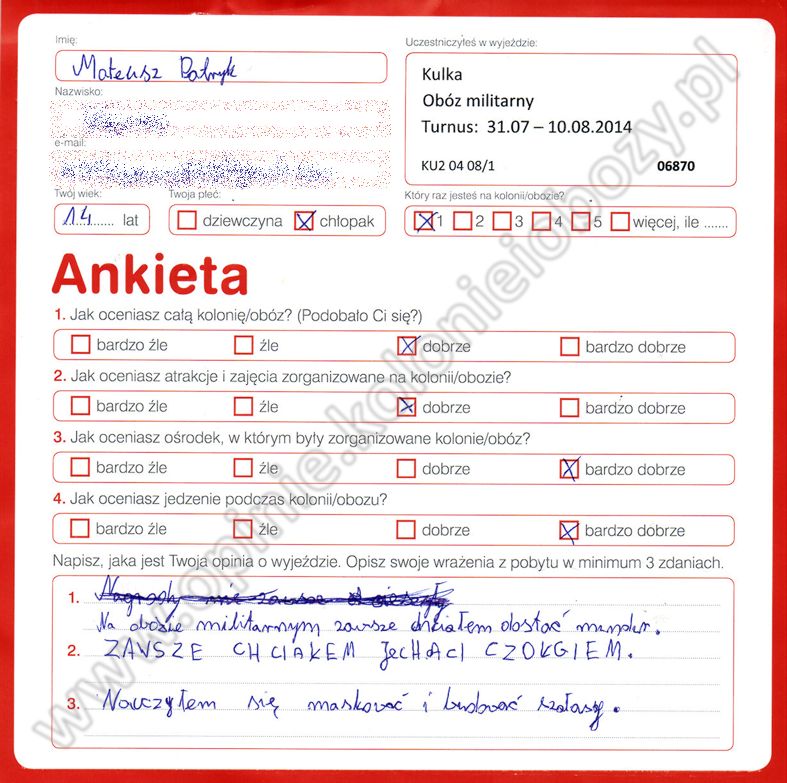 Imię:
Mateusz Patryk
Uczestniczyłeś w wyjeździe:
Kulka
Obóz militarny
Turnus: 31.07 – 10.08.2014
KU2 04 08/1 06870
Nazwisko:
e-mail:
Twój wiek:
14 lat
Twoja płeć:
dziewczyna chłopak
Który raz jesteś na kolonii/obozie?
1 2 3 4 5 więcej, ile .......
Ankieta
1. Jak oceniasz całą kolonię/obóz? (Podobało Ci się?)
bardzo źle źle dobrze bardzo dobrze
2. Jak oceniasz atrakcje i zajęcia zorganizowane na kolonii/obozie?
bardzo źle źle dobrze bardzo dobrze
3. Jak oceniasz ośrodek, w którym były zorganizowane kolonie/obóz?
bardzo źle źle dobrze bardzo dobrze
4. Jak oceniasz jedzenie podczas kolonii/obozu?
bardzo źle źle dobrze bardzo dobrze
Napisz, jaka jest Twoja opinia o wyjeździe. Opisz swoje wrażenia z pobytu w minimum 3 zdaniach.
1.
Na obozie militarnym zawsze chciałem dostać mundur.
2. ZAWSZE CHCIAŁEM JECHAĆ CZOŁGIEM.
3. Nauczyłem się maskować i budować szałasy.
www.opinie.kolonieiobozy.pl